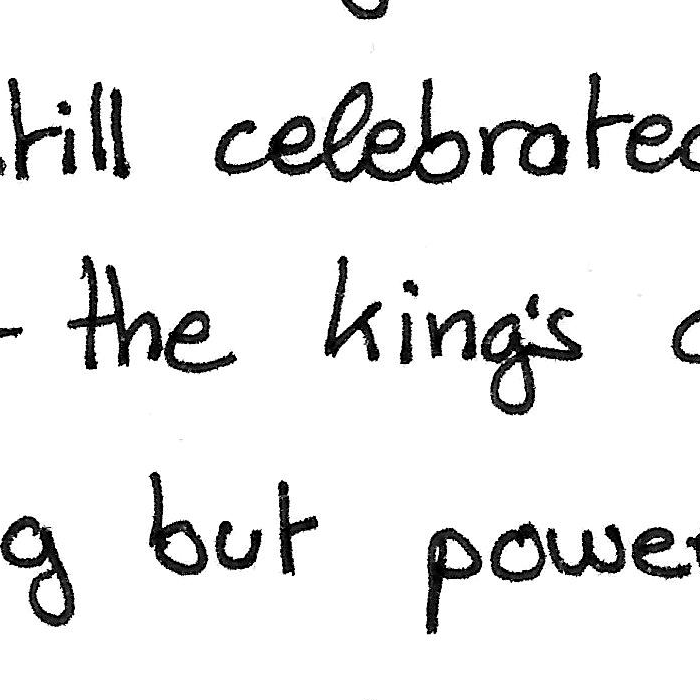 till celebrated
- the king's
g but power